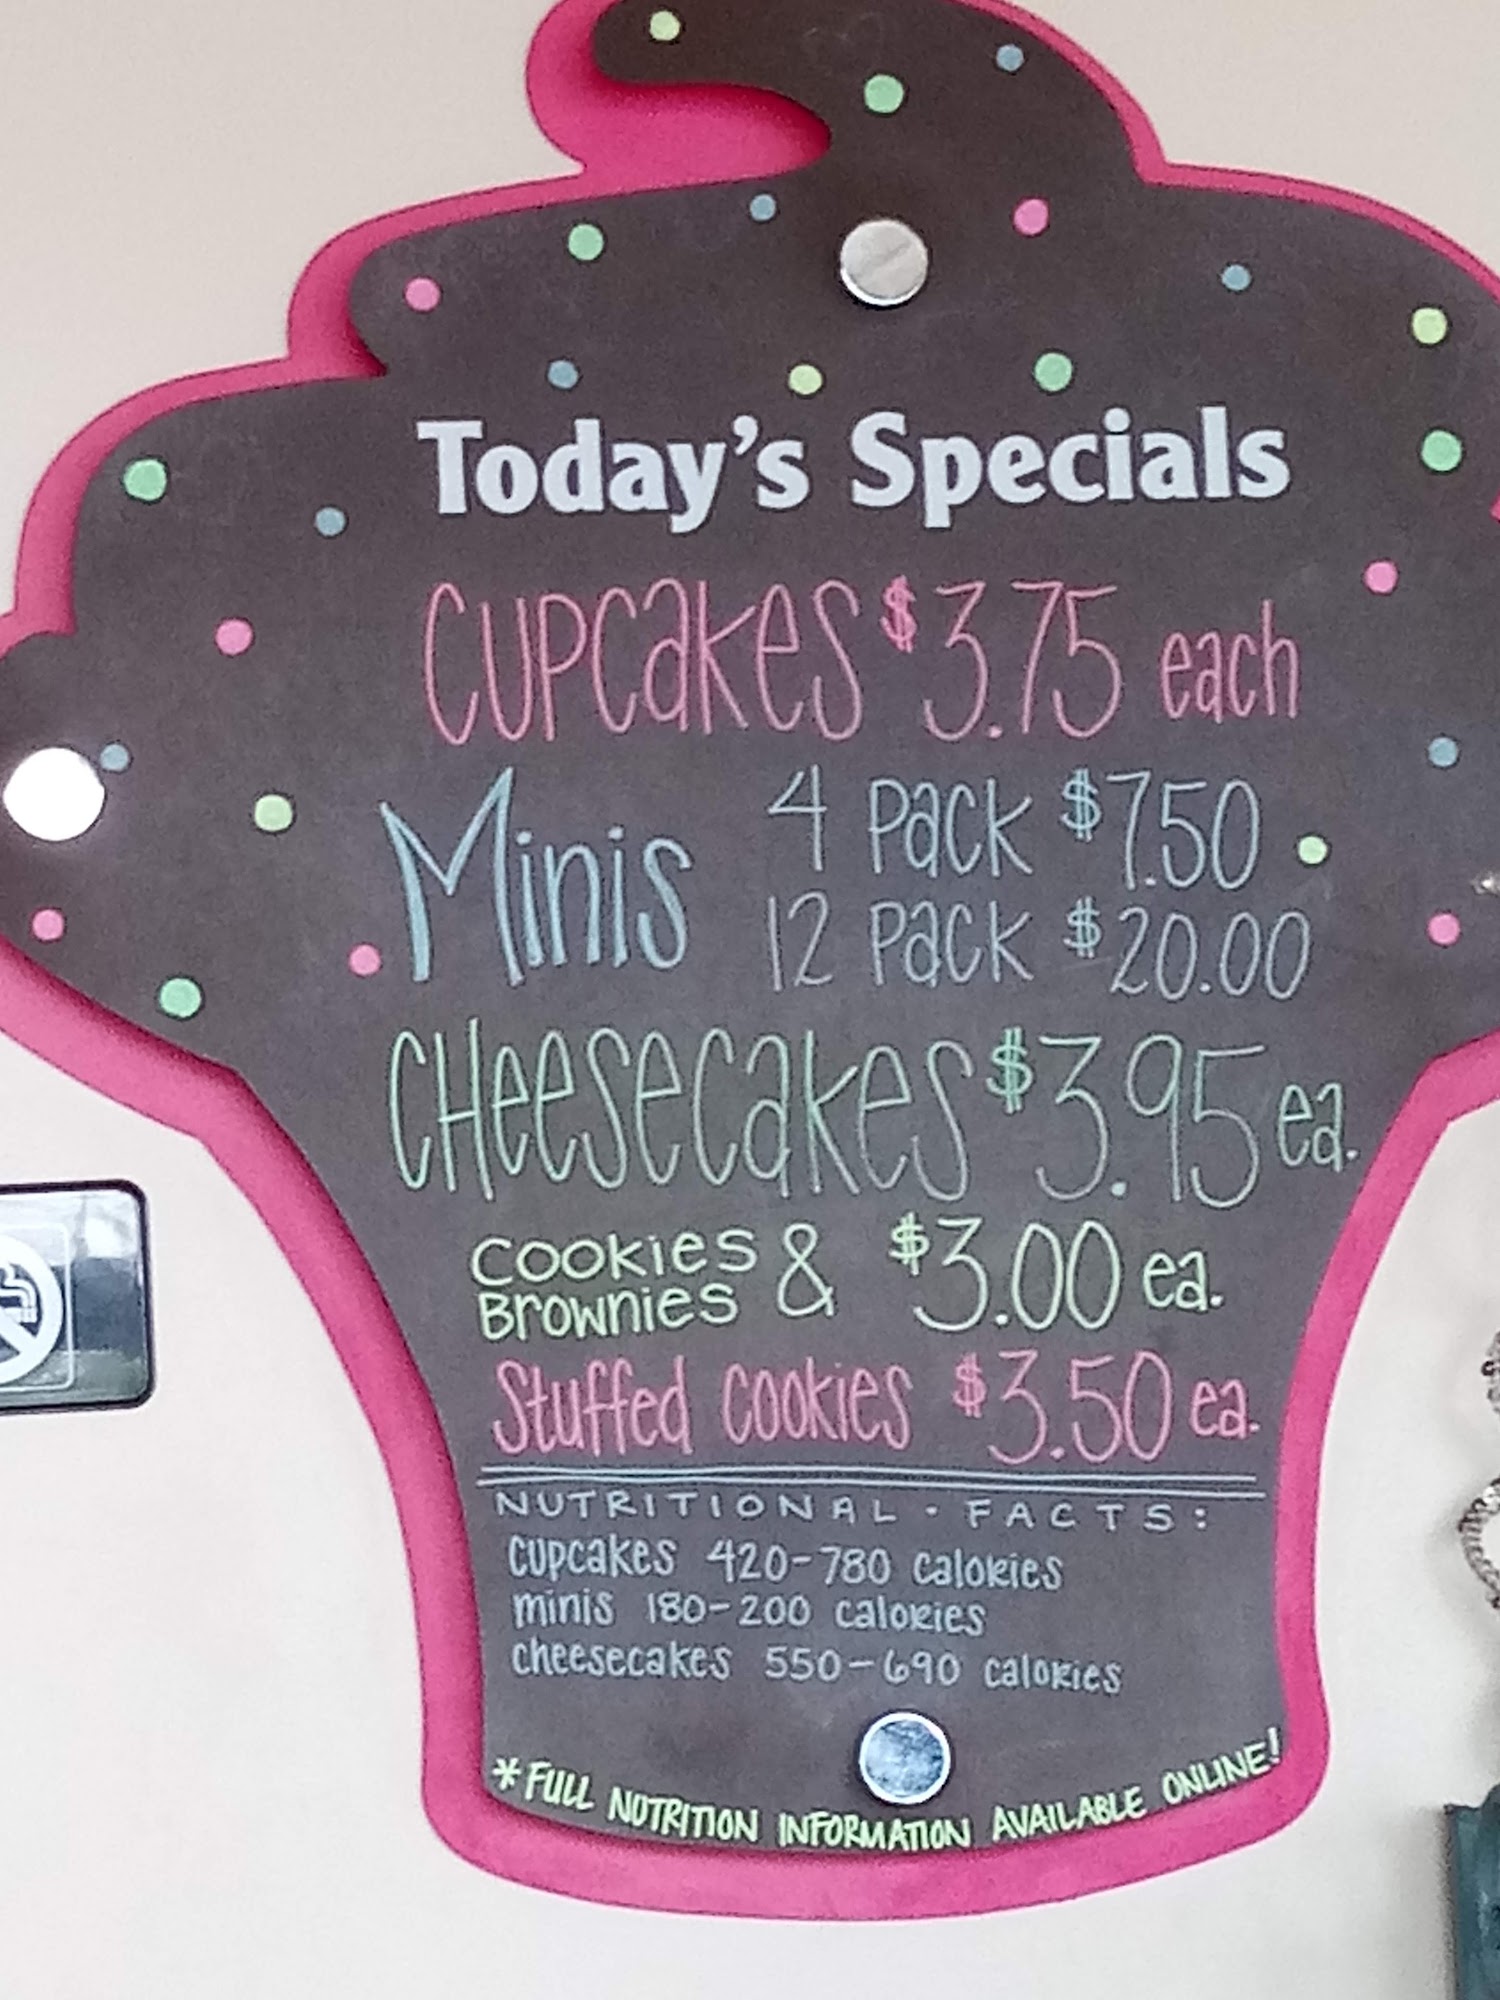 Today's Specials
CUPCakes $3.75 each
Minis 4 Pack $7.50
12 Pack $20.00
CHeesecakes $3.95 ea.
Cookies & Brownies $3.00 ea.
Stuffed cookies $3.50 ea.
NUTRITIONAL · FACTS:
cupcakes 420-780 calories
minis 180-200 calories
cheesecakes 550-690 calories
*FULL NUTRITION INFORMATION AVAILABLE ONLINE!